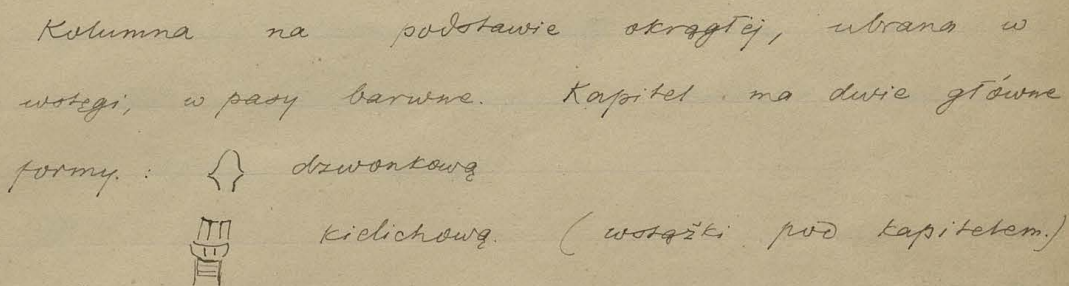 Kolumna na podstawie okrągłej, ubrana w
wstęgi, w pasy barwne. Kapitel ma dwie główne
formy. : dzwonkową
kielichową. (wstążki pod kapitelem.)